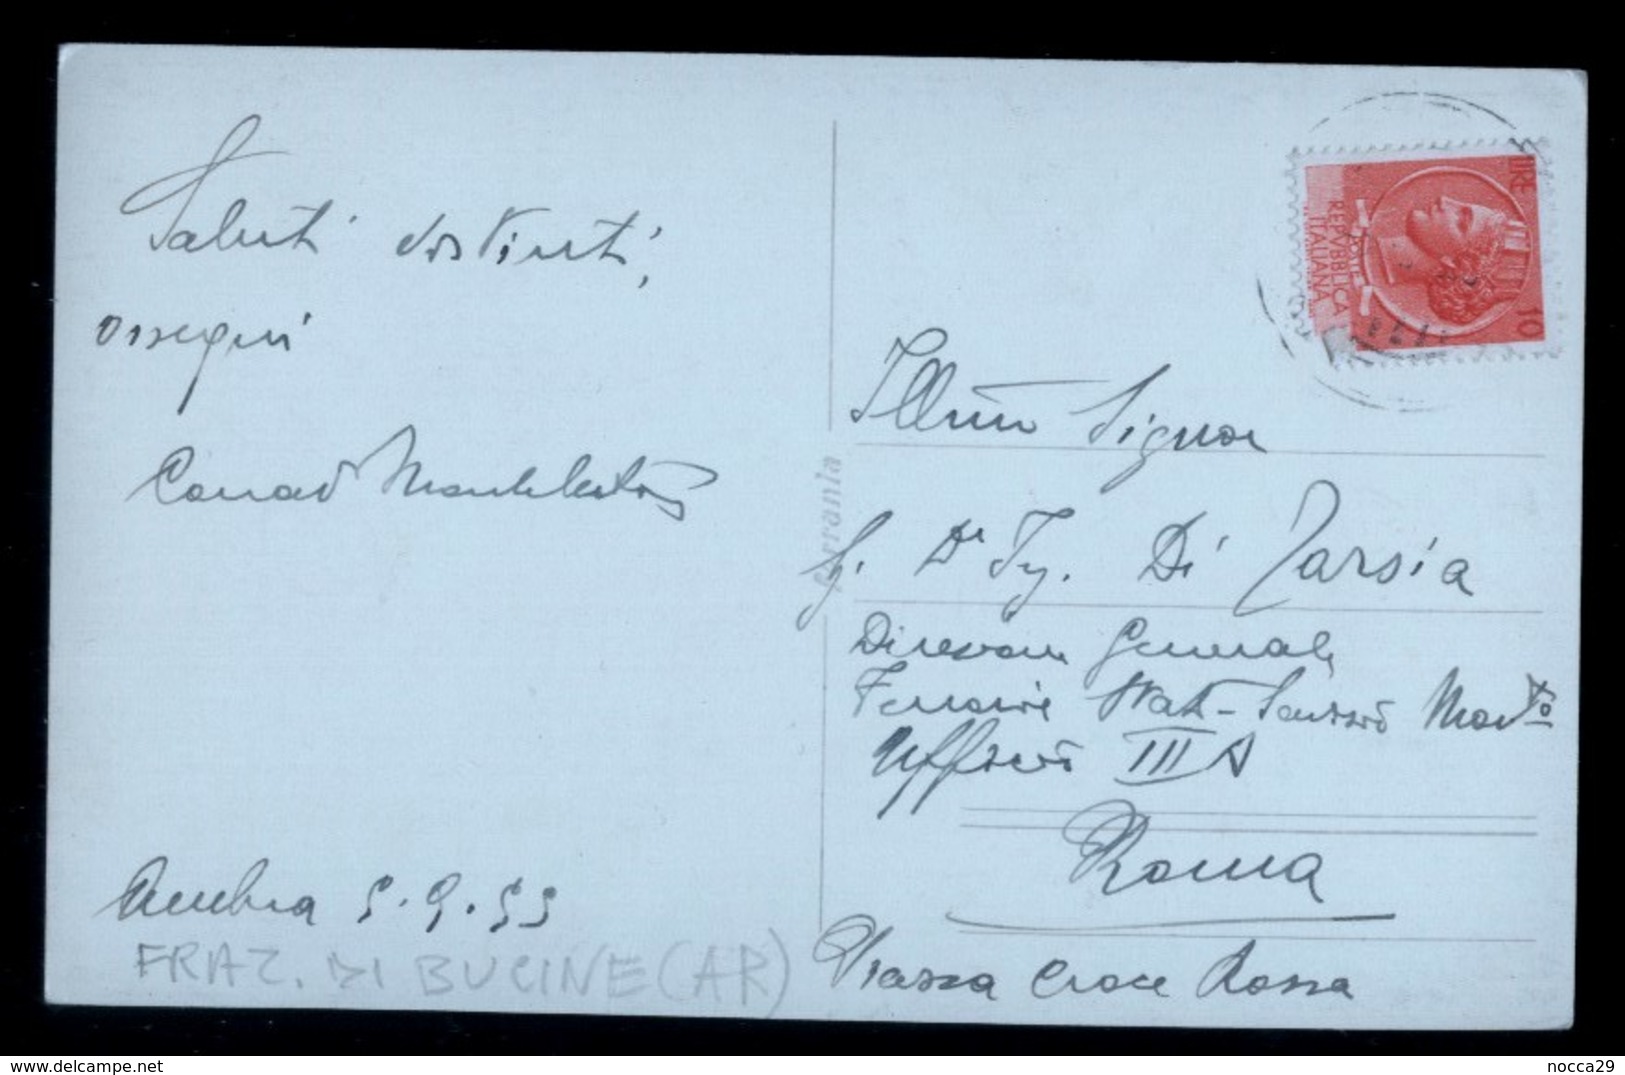 Saluti distinti,
ossequi
Ambra 5.9.53
FRAZ. DI BUCINE (AR)
ferrania
LIRE 10
POSTE
REPVBBLICA
ITALIANA
Ill.mo Signor
Dr Ing. Di Zarsia
Direzione Generale
Ferrovie Stato - Servizio
Ufficio III A
Roma
Piazza Croce Rossa
delcampe.net
nocca29